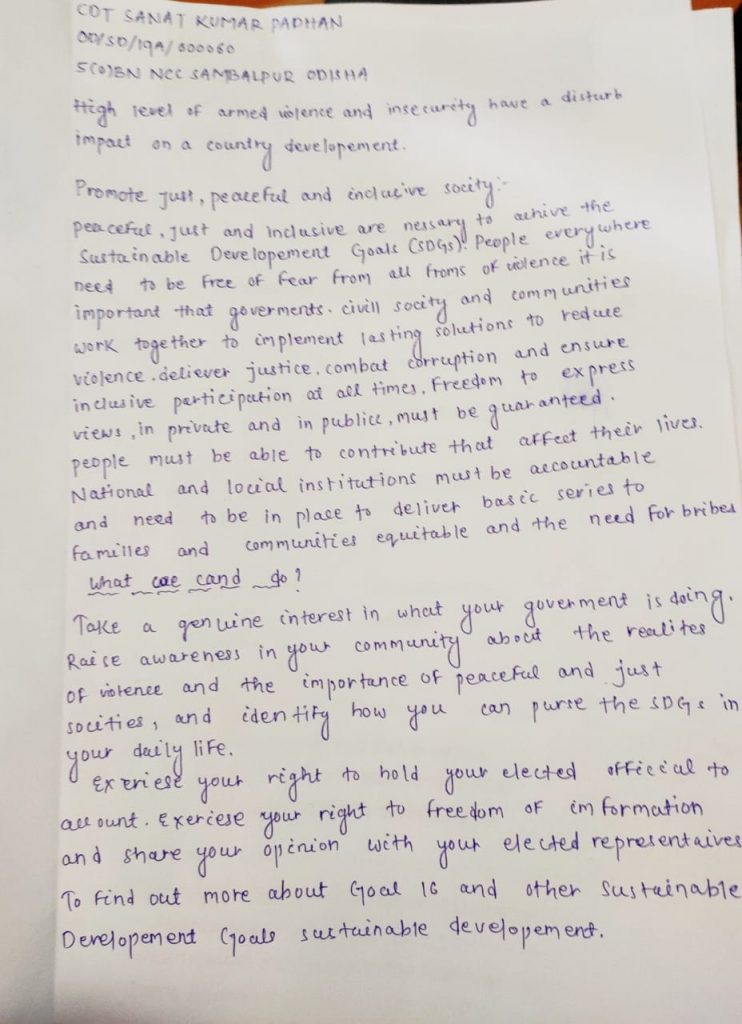 CDT SANAT KUMAR PADHAN
OD/SD/19A/600060
5(O)BN NCC SAMBALPUR ODISHA
High level of armed violence and insecurity have a disturb
impact on a country developement.
Promote Just, peaceful and inclusive socity:-
peaceful, just and Inclusive are nessary to achive the
Sustainable Developement Goals (SDGs). People everywhere
need to be free of fear from all froms of violence it is
important that goverments. civill socity and communities
work together to implement lasting solutions to reduce
violence. deliever justice, combat corruption and ensure
inclusive participation at all times. Freedom to express
views, in private and in publice, must be guaranteed.
people must be able to contribute that affect their lives.
National and local institutions must be accountable
and need to be in place to deliver basic series to
familles and communities equitable and the need for bribes
What cae cand do?
Take a genuine interest in what your goverment is doing.
Raise awareness in your community about the realites
of violence and the importance of peaceful and just
socities, and identify how you can purse the SDGs in
your daily life.
Exeriese your right to hold your elected official to
account. Exerciese your right to freedom of imformation
and share your opinion with your elected representaives
To find out more about Goal 16 and other Sustainable
Developement Goals sustainable developement.